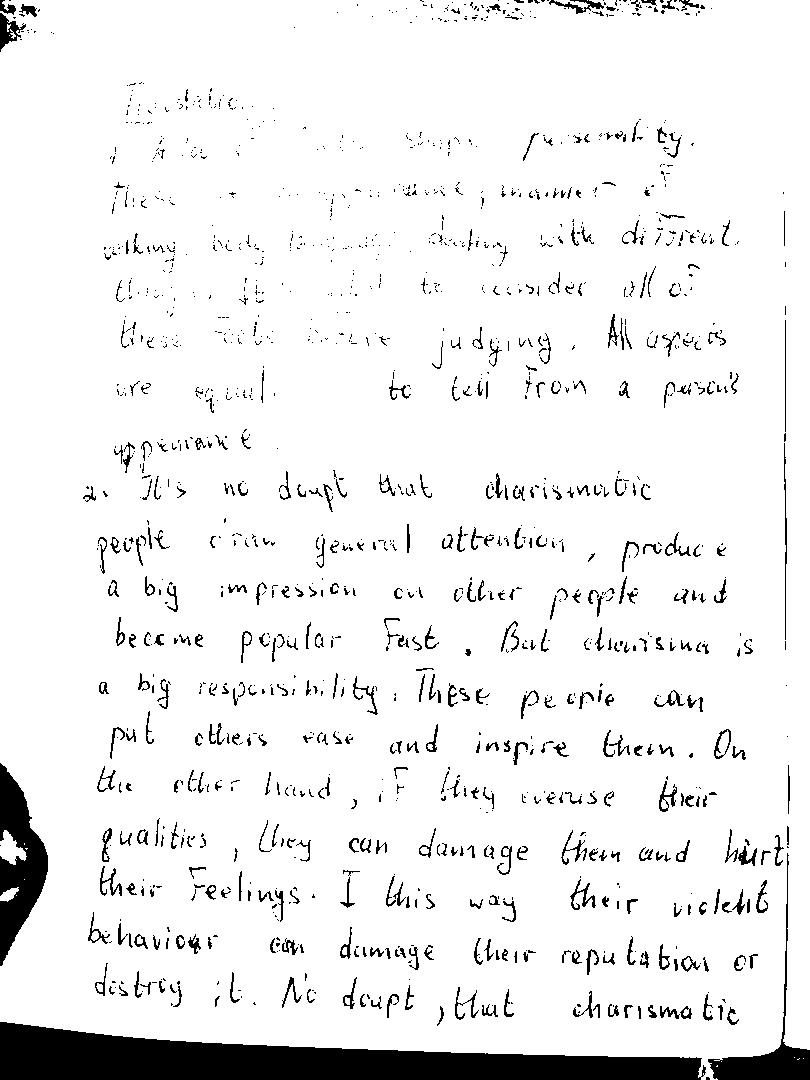 Translation
1. A lot of shape personality.
These appearance, manner of
walking, body language, dealing with different
things. It to consider all of
these before judging. All aspects
are equal. to tell From a person's
appearance.
2. It's no doupt that charismatic
people draw general attention, produce
a big impression on other people and
become popular Fast. But charisma is
a big responsibility. These people can
put others ease and inspire them. On
the other hand, iF they overuse their
qualities, they can damage them and hurt
their Feelings. I this way their violent
behaviour can damage their reputation or
destroy it. No doupt, that charismatic